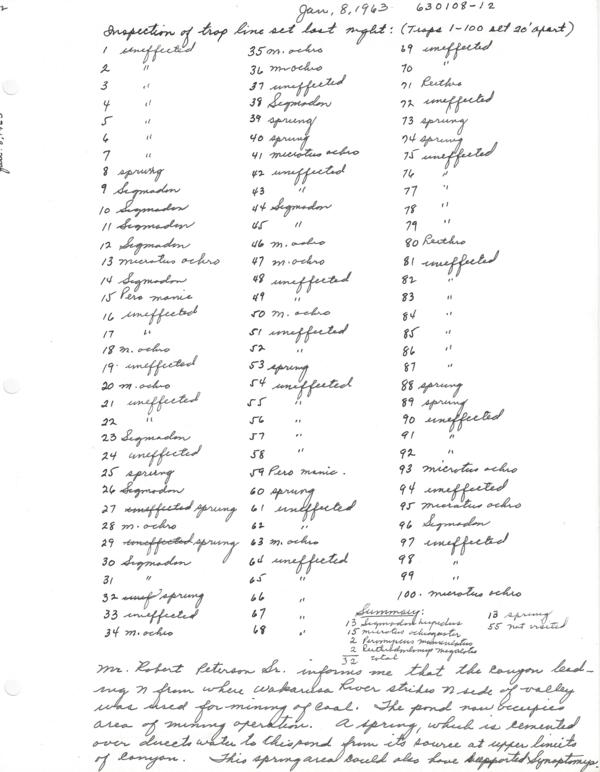 Jan. 8, 1963 630108-12
Inspection of trap line set last night: (Traps 1-100 set 20' apart)
1 uneffected
2 "
3 "
4 "
5 "
6 "
7 "
8 sprung
9 Sigmodon
10 Sigmodon
11 Sigmodon
12 Sigmodon
13 microtus ochro
14 Sigmodon
15 Pero manic
16 uneffected
17 "
18 m. ochro
19 uneffected
20 m. ochro
21 uneffected
22 "
23 Sigmodon
24 uneffected
25 sprung
26 Sigmodon
27 uneffected sprung
28 m. ochro
29 uneffected sprung
30 Sigmodon
31 "
32 unef sprung
33 uneffected
34 m. ochro
35 m. ochro
36 m. ochro
37 uneffected
38 Sigmodon
39 sprung
40 sprung
41 microtus ochro
42 uneffected
43 "
44 Sigmodon
45 "
46 m. ochro
47 m. ochro
48 uneffected
49 "
50 m. ochro
51 uneffected
52 "
53 sprung
54 uneffected
55 "
56 "
57 "
58 "
59 Pero manic.
60 sprung
61 uneffected
62 "
63 m. ochro
64 uneffected
65 "
66 "
67 "
68 "
69 uneffected
70 "
71 Reithro
72 uneffected
73 sprung
74 sprung
75 uneffected
76 "
77 "
78 "
79 "
80 Reithro
81 uneffected
82 "
83 "
84 "
85 "
86 "
87 "
88 sprung
89 sprung
90 uneffected
91 "
92 "
93 microtus ochro
94 uneffected
95 microtus ochro
96 Sigmodon
97 uneffected
98 "
99 "
100. microtus ochro
Summary:
13 Sigmodon hispidus
15 microtus ochrogaster
2 Peromyscus maniculatus
2 Reithrodontomys megalotis
32 total
13 sprung
55 not visited
Mr. Robert Peterson Sr. informs me that the canyon lead-
ing N from where Wakarusa River strikes N side of valley
was used for mining of coal. The pond now occupies
area of mining operation. A spring, which is cemented
over directs water to this pond from its source at upper limits
of canyon. This spring area could also have supported Synaptomys.